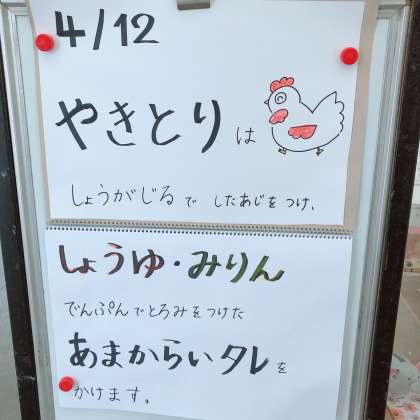 4/12
やきとりは
しょうがじるで したあじをつけ、
しょうゆ・みりん
でんぷんでとろみをつけた
あまからいタレを
かけます。